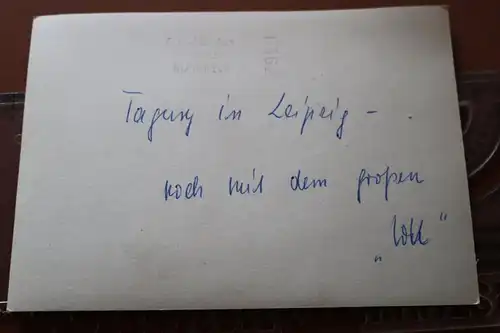 Tagung in Leipzig –
noch mit dem großen